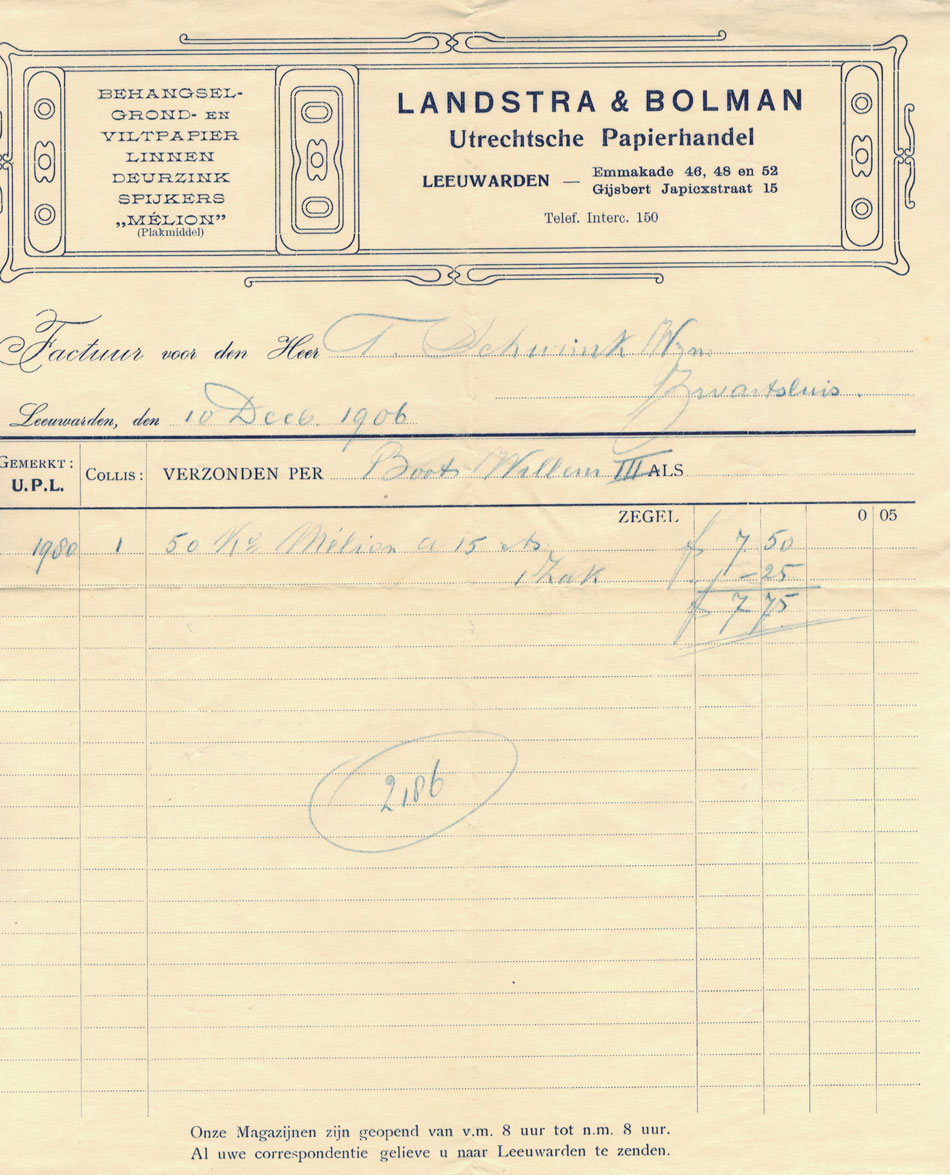 BEHANGSEL-
GROND- EN
VILTPAPIER
LINNEN
DEURZINK
SPIJKERS
„MÉLION”
(Plakmiddel)
LANDSTRA & BOLMAN
Utrechtsche Papierhandel
LEEUWARDEN — Emmakade 46, 48 en 52
Gijsbert Japicxstraat 15
Telef. Interc. 150
Factuur voor den Heer T. Schurink Wzn.
Zwartsluis.
Leeuwarden, den 10 Decb. 1906
GEMERKT: U.P.L. COLLIS: VERZONDEN PER Boot Willem III ALS
ZEGEL 0 05
1980 1 50 Ko Mélion a 15 cts f 7 50
1 Zak - 25
f 7 75
2186
Onze Magazijnen zijn geopend van v.m. 8 uur tot n.m. 8 uur.
Al uwe correspondentie gelieve u naar Leeuwarden te zenden.